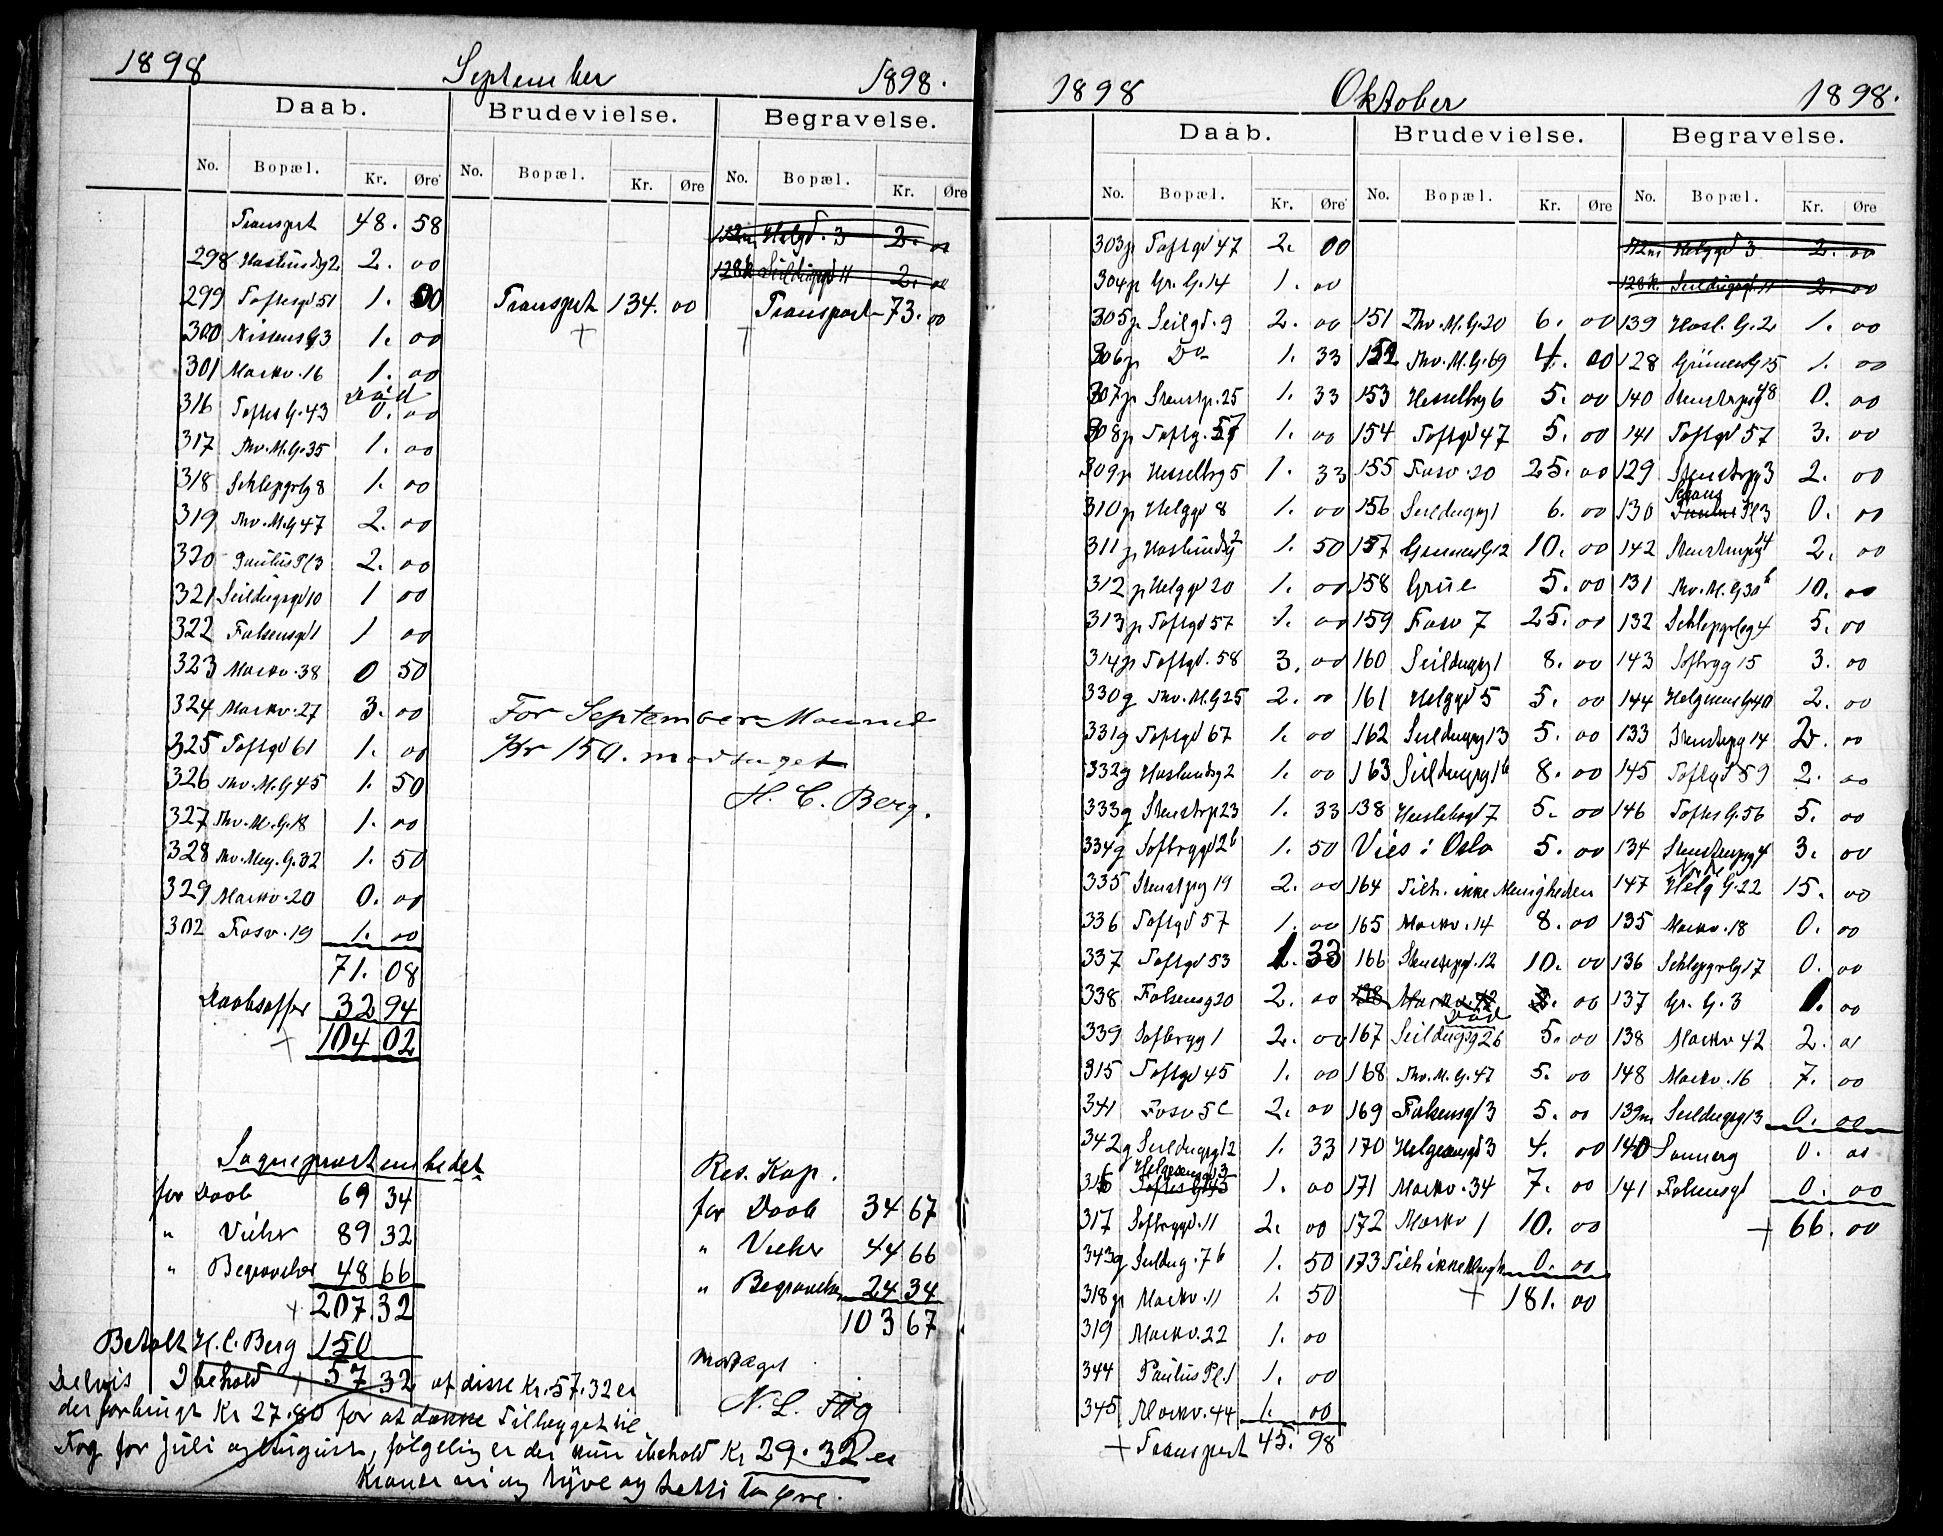 1898 September 1898.
Daab. Brudevielse. Begravelse.
No. Bopæl. Kr. Øre No. Bopæl. Kr. Øre No. Bopæl. Kr. Øre
Transport 48. 58 112m Helgd. 3 2. 00
298 Haslundsg 2 2. 00 128k Seildugsgd 11 2. 00
299 Toftesgd 51 1. 00 Transprt 134. 00 Transport 73. 00
300 Nissens G 3 1. 00
301 Markv. 16 1. 00
Död
316 Toftes G. 43 0. 00
317 Thv. M. G. 35 1. 00
318 Schleppgrlg 8 1. 00
319 Thv. M. G 47 2. 00
320 Paulus Pl 3 2. 00
321 Seildugsgd 10 1 00
322 Falsensgd 1 1 00
323 Markv. 38 0 50
324 Markv. 27 3. 00 For September Maaned
325 Toftgd 61 1. 00 Kr 150. modtaget
326 Thv. M. G 45 1. 50 H. C. Berg.
327 Thv. M. G. 18 1. 00
328 Thv. Mey. G. 32 1. 50
329 Markv. 20 0. 00
302 Fosv. 19 1. 00
71. 08
Daabsoffer 32 94
+ 104 02
Sognepræstembedet Res. Kap.
for Daab 69 34 for Daab 34 67
" Vielser 89 32 " Vielser 44 66
" Begravelser 48 66 " Begravelser 24 34
+ 207. 32 103 67
Betalt H. C. Berg 150 modtaget
Delvis Ibehold + 57 32 af disse Kr. 57.32 er N. L. Tøg
der forbrugt Kr 27.80 for at dække Tilbygget til
Tog for Juli og August, følgelig er der kun ibehold Kr 29.32 er
Kroner ni og tyve og tretti to øre.
1898 Oktober 1898.
Daab. Brudevielse. Begravelse.
No. Bopæl. Kr. Øre No. Bopæl. Kr. Øre No. Bopæl. Kr. Øre
303 p Toftgd 47 2. 00 112m Helggd 3 2. 00
304 p Gr. G. 14 1. 00 128k. Seildugsgd. 11 2. 00
305 p Seilgd. 9 2. 00 151 Thv. M. G. 20 6. 00 139 Hasl. G. 2 1. 00
306 p Do 1. 33 152 Thv. M. G. 69 4. 00 128 Grünersg 15 1. 00
307 p Stenstp. 25 1. 33 153 Hesselbg 6 5. 00 140 Stenstrupsg 48 0. 00
308 p Toftg. 57 1. 00 154 Toftgd 47 5. 00 141 Toftgd 57 3. 00
309 p Hesselbg 5 1. 33 155 Fosv. 20 25. 00 129 Stenstrpg 3 2. 00
310 p Helggd 8 1. 00 156 Seildugsg 1 6. 00 130 Paulus Pl 3 0. 00
311 p Haslundsg 2 1. 50 157 Grüners G 12 10. 00 142 Stenstrupsg 14 2. 00
312 p Helggd 20 1. 00 158 Grüe 5. 00 131 Thv. M. G 30 b 10. 00
313 p Toftgd 57 1. 00 159 Fosv 7 25. 00 132 Schleppgrlsg 4 5. 00
314 p Toftgd. 58 3. 00 160 Seildugsg 1 8. 00 143 Sofbrgg 15 3. 00
330 g Thv. M. G 25 2. 00 161 Helggd 5 5. 00 144 Helgesens G 40 2. 00
331 g Toftgd 67 1. 00 162 Seildugsg 13 5. 00 133 Stenstrpg 14 2. 00
332 g Haslundsg 2 1. 00 163 Seildugsg 1 b 8. 00 145 Toftgd 59 2. 00
333 g Stenstrp 23 1. 33 138 Hesselbsgd 7 5. 00 146 Toftes G. 56 5. 00
334 g Sofbrggd 2 b 1. 50 Vies i Oslo 5. 00 134 Stenstrupsg 4 3. 00
335 Stenstpg 19 2. 00 164 Tilh. ikke Menigheden 147 Helg G. 22 15. 00
336 Toftgd 57 1. 00 165 Markv. 14 8. 00 135 Markv. 18 0. 00
337 Toftgd 53 1. 33 166 Stenstrpgd. 12 10. 00 136 Schleppgrlsg 17 0. 00
338 Falsensg 20 2. 00 138 Markv. 42 2. 00 137 Gr. G. 3 1. 00
Död
339 Sofbrgg 1 2. 00 167 Seildugsg 26 5. 00 138 Markv 42 2. 00
315 Toftgd 45 1. 00 168 Thv. M. G. 47 5. 00 148 Markv. 16 7. 00
341 Fosv 5 C 2. 00 169 Falsensgd 3 5. 00 139m Seildugsg 13 0. 00
342 g Seildugsg 12 1. 33 170 Helgesensgd 3 4. 00 140 Sannerg 0. 00
Helgesensgd 3
316 Toftes G 45 1. 00 171 Markv. 34 7. 00 141 Falsensgd 0. 00
317 Sofbrggd. 11 2. 00 172 Markv 1 10. 00 + 66. 00
343 g Seildug. 7 b 1. 50 173 Tilh ikke Mengh 0. 00
318 p Markv. 11 1. 50 + 181. 00
319 Markv. 22 1. 00
344 Paulus Pl. 1 1. 00
345 Markv. 44 1. 00
+ Transport 45. 98